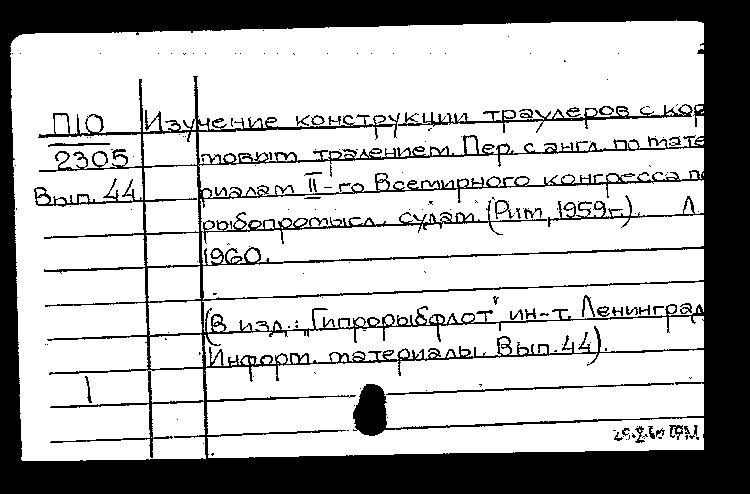 П10 Изучение конструкции траулеров с кор
2305 товым тралением. Пер. с англ. по мате
Вып. 44 риалам II-го Всемирного конгресса по
рыбопромысл. судам (Рим, 1959г.). Л
1960.
(В изд.: "Гипрорыбфлот", ин-т. Ленинград
Информ. материалы. Вып. 44).
1